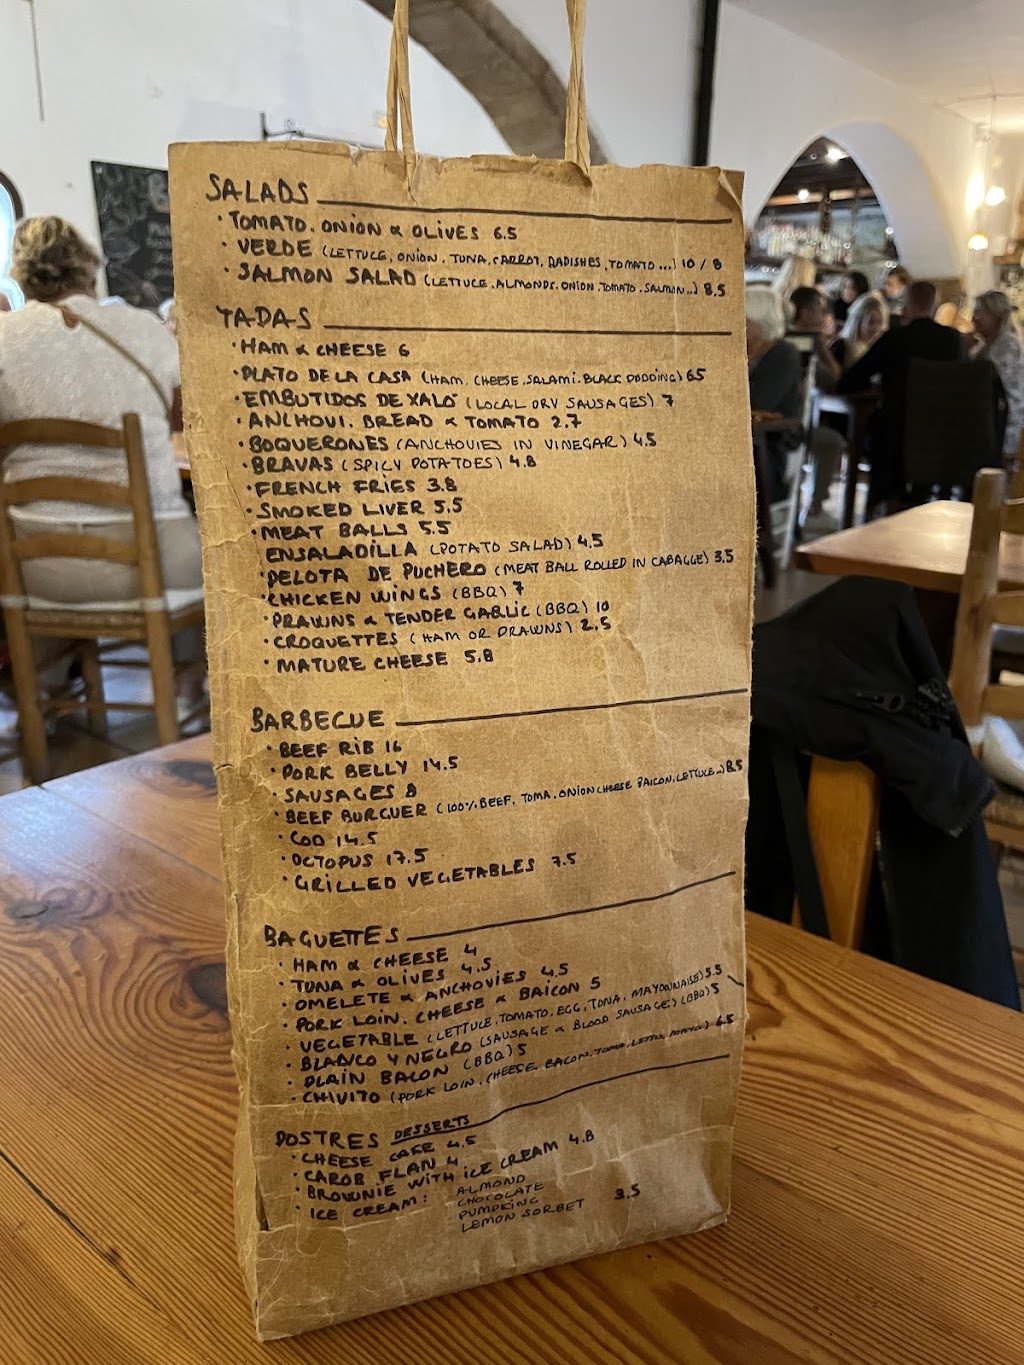 SALADS
· TOMATO. ONION & OLIVES 6.5
· VERDE (LETTUCE, ONION, TUNA, CARROT, RADISHES, TOMATO...) 10 / 8
· SALMON SALAD (LETTUCE, ALMONDS, ONION, TOMATO, SALMON..) 8.5
TAPAS
· HAM & CHEESE 6
· PLATO DE LA CASA (HAM, CHEESE, SALAMI, BLACK PUDDING) 6.5
· EMBUTIDOS DE XALÓ (LOCAL DRY SAUSAGES) 7
· ANCHOVI. BREAD & TOMATO 2.7
· BOQUERONES (ANCHOVIES IN VINEGAR) 4.5
· BRAVAS (SPICY POTATOES) 4.8
· FRENCH FRIES 3.8
· SMOKED LIVER 5.5
· MEAT BALLS 5.5
ENSALADILLA (POTATO SALAD) 4.5
· PELOTA DE PUCHERO (MEAT BALL ROLLED IN CABAGGE) 3.5
· CHICKEN WINGS (BBQ) 7
· PRAWNS & TENDER GARLIC (BBQ) 10
· CROQUETTES (HAM OR PRAWNS) 2.5
· MATURE CHEESE 5.8
BARBECUE
· BEEF RIB 16
· PORK BELLY 14.5
· SAUSAGES 8
· BEEF BURGUER (100% BEEF, TOMA. ONION CHEESE BAICON, LETTUCE..) 8.5
· COD 14.5
· OCTOPUS 17.5
· GRILLED VEGETABLES 7.5
BAGUETTES
· HAM & CHEESE 4
· TUNA & OLIVES 4.5
· OMELETE & ANCHOVIES 4.5
· PORK LOIN. CHEESE & BAICON 5
· VEGETABLE (LETTUCE, TOMATO, EGG, TUNA, MAYONNAISE) 5.5
· BLANCO Y NEGRO (SAUSAGE & BLOOD SAUSAGE) (BBQ) 5
· PLAIN BACON (BBQ) 5
· CHIVITO (PORK LOIN, CHEESE, BACON, TOMA, LETTU, MAYO) 6.5
POSTRES DESSERTS
· CHEESE CAKE 4.5
· CAROB FLAN 4
· BROWNIE WITH ICE CREAM 4.8
· ICE CREAM: ALMOND
CHOCOLATE
PUMPKING 3.5
LEMON SORBET